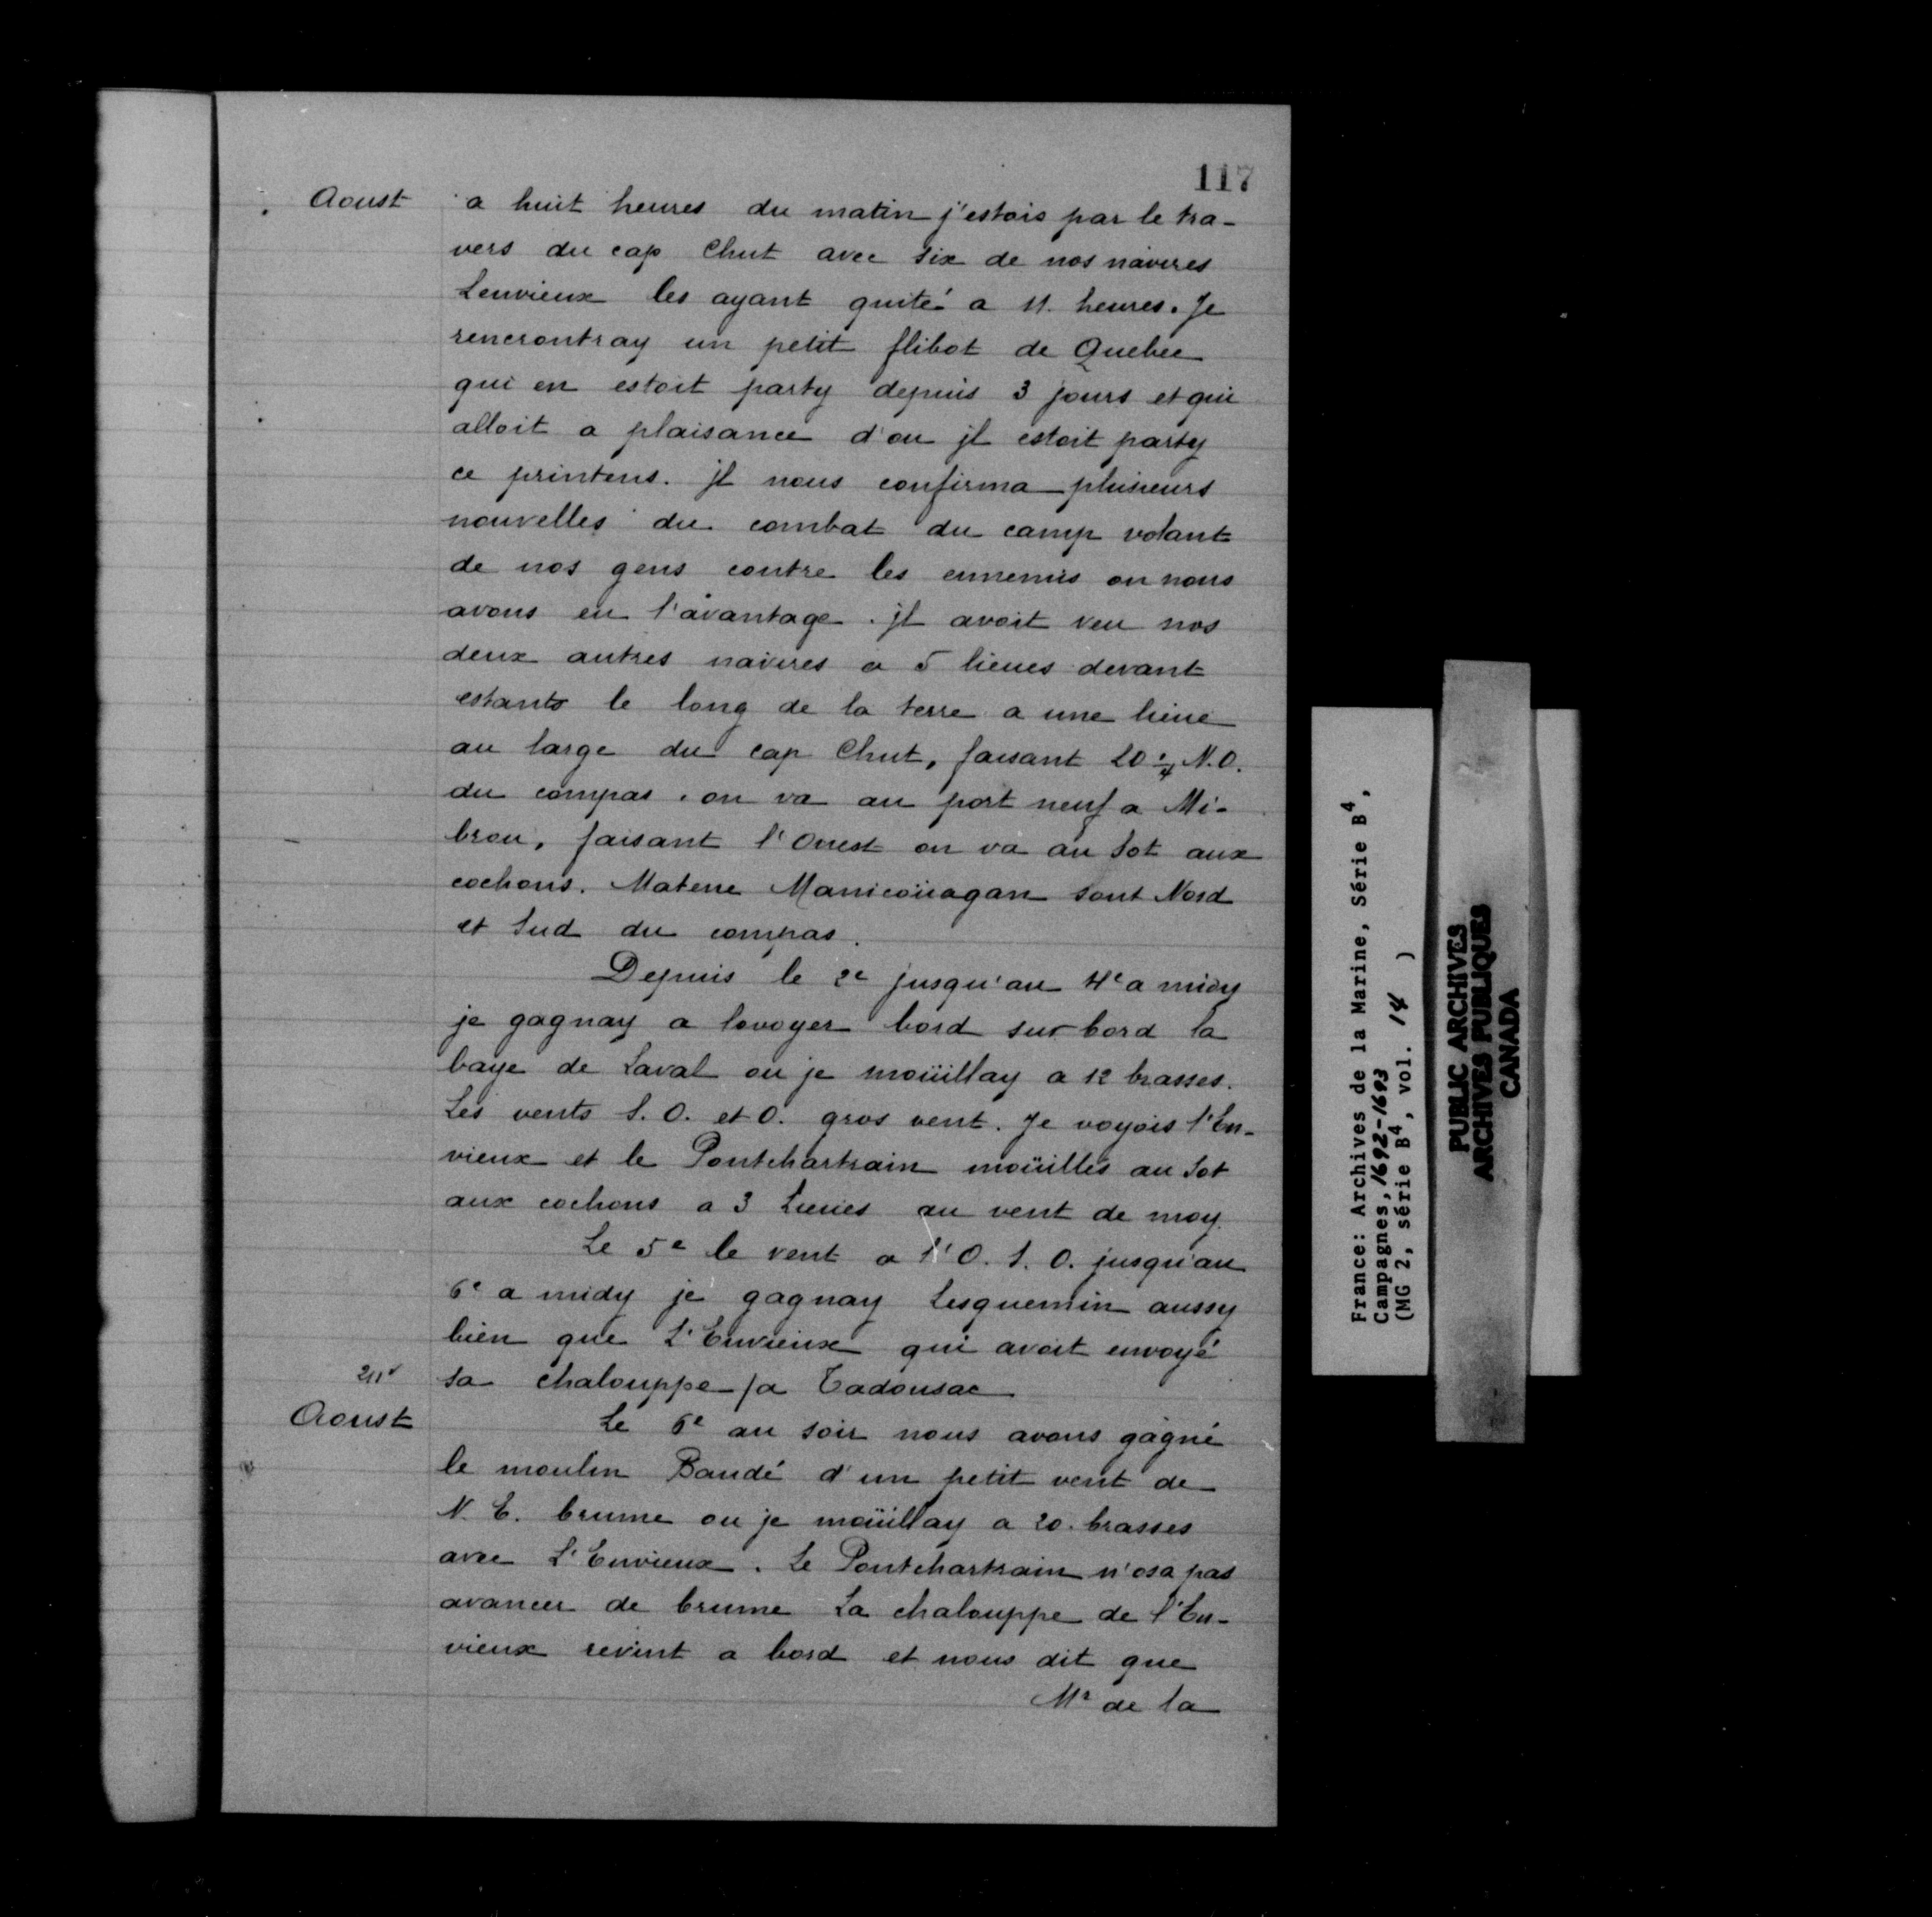 117
Aoust
a huit heures du matin j'estois par le tra-
vers du cap Chut avec six de nos navires
Lenvieux les ayant quité a 11. heures. Je
rencrontray un petit flibot de Quebec
qui en estoit party depuis 3 jours et qui
alloit a plaisance d'ou jl estoit party
ce printens. jl nous confirma plusieurs
nouvelles du combat du camp volant
de nos gens contre les ennemis ou nous
avons eu l'avantage. jl avoit veu nos
deux autres navires a 5 lieues devant
estants le long de la terre a une lieue
au large du cap Chut, faisant LO 1/4 N.O.
du compas. on va au port neuf a Mi-
brou, faisant l'Ouest on va au Sot aux
cochons. Matene Manicoüagan sont Nord
et Sud du compas.
Depuis le 2e jusqu'au 4e a midy
je gagnay a lovoyer bord sur bord la
baye de Laval ou je moüillay a 12 brasses.
Les vents S.O. et O. gros vent. Je voyois l'En-
vieux et le Pontchartrain moüillés au Sot
aux cochons a 3 Lieues au vent de moy.
Le 5e le vent a l'O. S. O. jusqu'au
6e a midy je gagnay Lesquemin aussy
bien que L'Envieux qui avoit envoyé
sa chalouppe /a Tadousac
211v
Aoust
Le 6e au soir nous avons gagné
le moulin Baudé d'un petit vent de
N. E. brume ou je moüillay a 20. brasses
avec L'Envieux. Le Pontchartrain n'osa pas
avancer de brume La chalouppe de l'En-
vieux revint a bord et nous dit que
Mr de la
France: Archives de la Marine, Série B4,
Campagnes, 1692-1693
(MG 2, série B4, vol. 14 )
PUBLIC ARCHIVES
ARCHIVES PUBLIQUES
CANADA